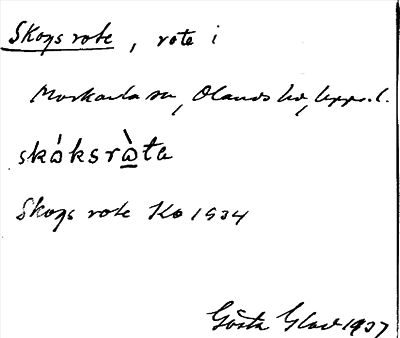 Skogs rote, rote i
Morkarla sn, Olands hd, Upps. l.
skåksrò̱te
Skogs rote Ko 1934
Gösta Glad 1937